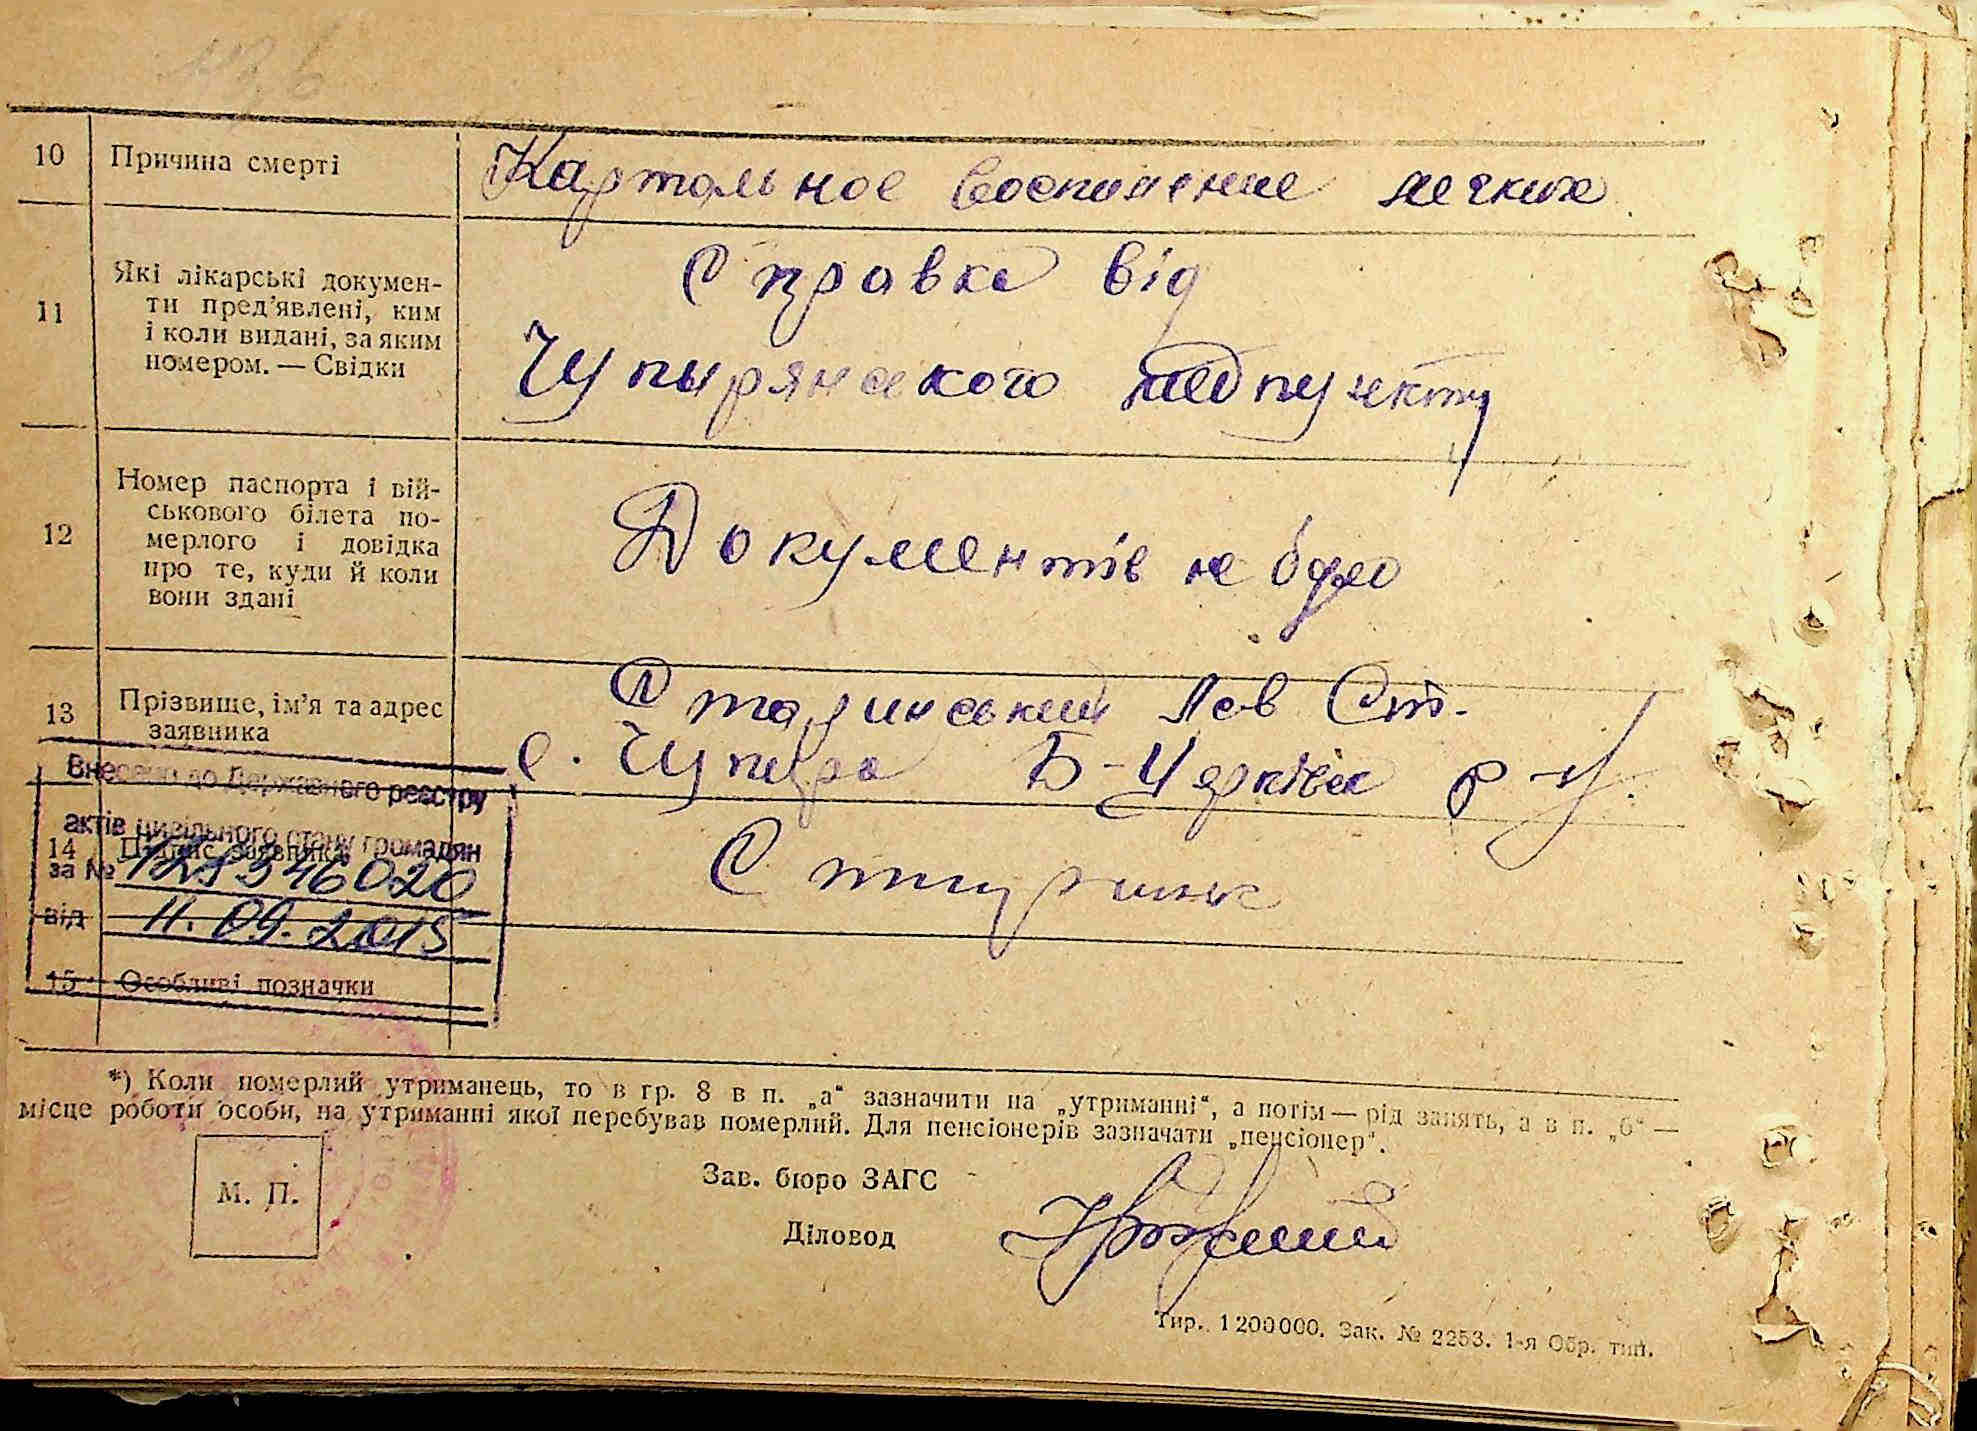 10 Причина смерті
Картольное воспиление легких
11 Які лікарські докумен-
ти пред'явлені, ким
і коли видані, за яким
номером. — Свідки
Справка від
Чупырянського медпункту
12 Номер паспорта і вій-
ськового білета по-
мерлого і довідка
про те, куди й коли
вони здані
Документів не було
13 Прізвище, ім'я та адрес
заявника
Лев Ст.
с. Чупера Б-Церківск р-н.
Внесено до Державного реєстру
актів цивільного стану громадян
14 Підпис заявника
за №
від 11.09.2015
15 Особливі позначки
*) Коли померлий утриманець, то в гр. 8 в п. „а“ зазначити на „утриманні“, а потім — рід занять, а в п. „б“ —
місце роботи особи, на утриманні якої перебував померлий. Для пенсіонерів зазначати „пенсіонер“.
М. П.
Зав. бюро ЗАГС
Діловод
Тир. 1200000. Зак. № 2253. 1-я Обр. тип.